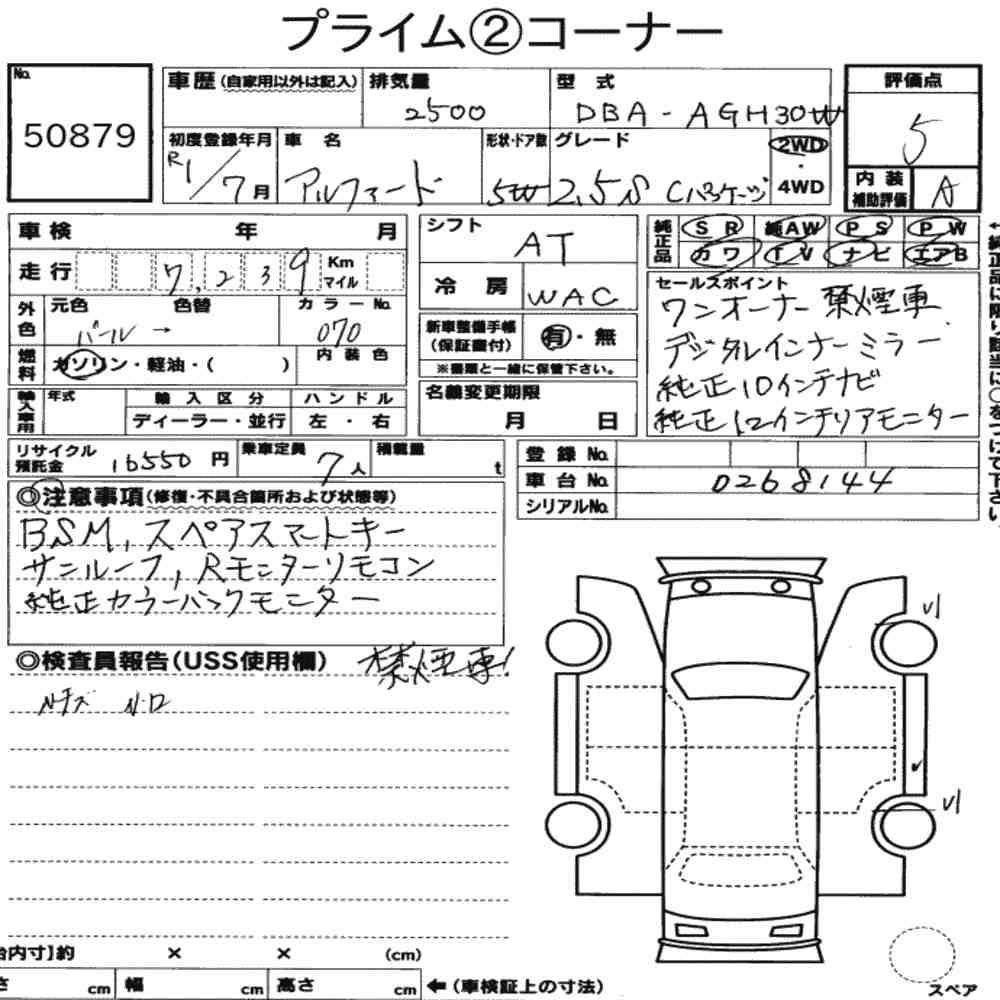 プライム②コーナー
No.
50879
車歴(自家用以外は記入)
排気量
2500
型式
DBA-AGH30W
評価点
5
初度登録年月
R1/7月
車名
アルファード
形状・ドア数
5W
グレード
2.5S Cパッケージ
2WD
・
4WD
内装
補助評価
A
車検 年 月
走行 7,239 Km マイル
外色
元色 色替
パール →
カラーNo.
070
燃料
ガソリン・軽油・( )
内装色
輸入車用
年式
輸入区分
ディーラー・並行
ハンドル
左・右
シフト
AT
冷房
WAC
新車整備手帳
(保証書付)
有・無
※書類と一緒に保管下さい。
名義変更期限
月 日
純正品
SR 純AW PS PW
カワ TV ナビ エアB
セールスポイント
ワンオーナー 禁煙車
デジタルインナーミラー
純正10インチナビ
純正12インチリアモニター
←純正品に限り該当に○をつけて下さい
リサイクル
預託金
16550円
乗車定員
7人
積載量
t
登録No.
車台No.
0268144
シリアルNo.
◎注意事項(修復・不具合箇所および状態等)
BSM,スペアスマートキー
サンルーフ,Rモニターリモコン
純正カラーバックモニター
◎検査員報告(USS使用欄)
禁煙車!
V1
V1
台内寸】約 × × (cm)
さ cm 幅 cm 高さ cm
←(車検証上の寸法)
スペア